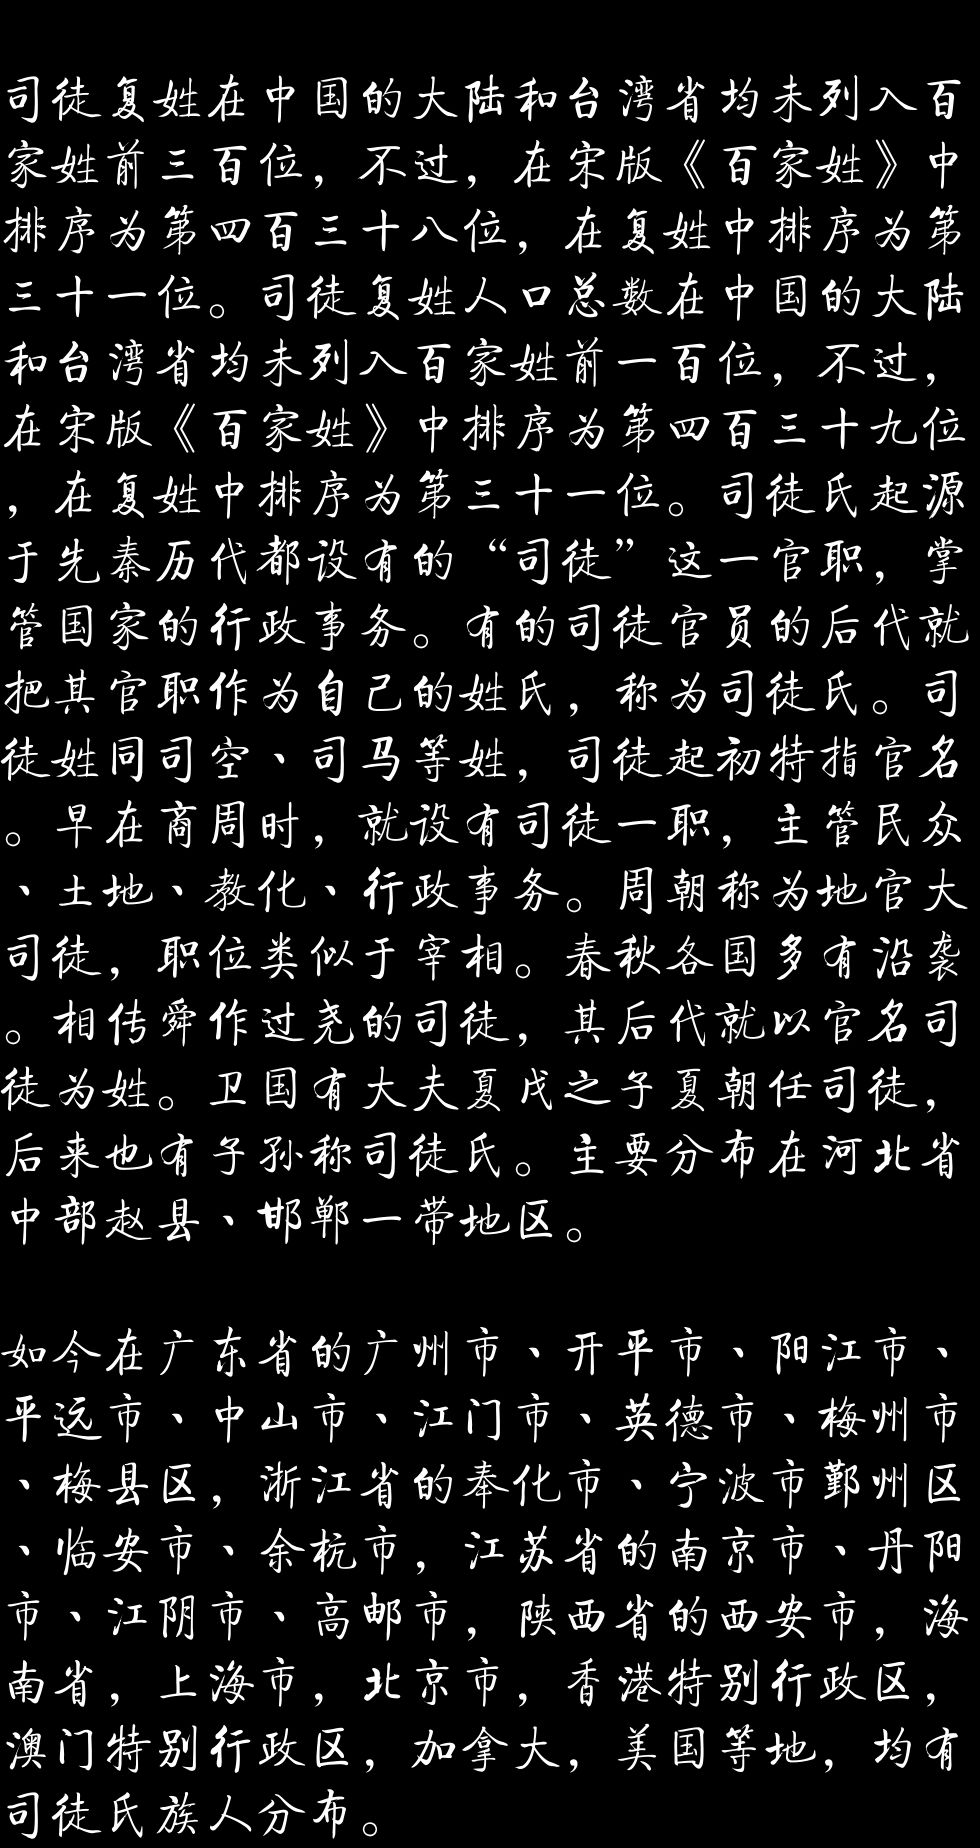 司徒复姓在中国的大陆和台湾省均未列入百
家姓前三百位，不过，在宋版《百家姓》中
排序为第四百三十八位，在复姓中排序为第
三十一位。司徒复姓人口总数在中国的大陆
和台湾省均未列入百家姓前一百位，不过，
在宋版《百家姓》中排序为第四百三十九位
，在复姓中排序为第三十一位。司徒氏起源
于先秦历代都设有的“司徒”这一官职，掌
管国家的行政事务。有的司徒官员的后代就
把其官职作为自己的姓氏，称为司徒氏。司
徒姓同司空、司马等姓，司徒起初特指官名
。早在商周时，就设有司徒一职，主管民众
、土地、教化、行政事务。周朝称为地官大
司徒，职位类似于宰相。春秋各国多有沿袭
。相传舜作过尧的司徒，其后代就以官名司
徒为姓。卫国有大夫夏戊之子夏朝任司徒，
后来也有子孙称司徒氏。主要分布在河北省
中部赵县、邯郸一带地区。
如今在广东省的广州市、开平市、阳江市、
平远市、中山市、江门市、英德市、梅州市
、梅县区，浙江省的奉化市、宁波市鄞州区
、临安市、余杭市，江苏省的南京市、丹阳
市、江阴市、高邮市，陕西省的西安市，海
南省，上海市，北京市，香港特别行政区，
澳门特别行政区，加拿大，美国等地，均有
司徒氏族人分布。